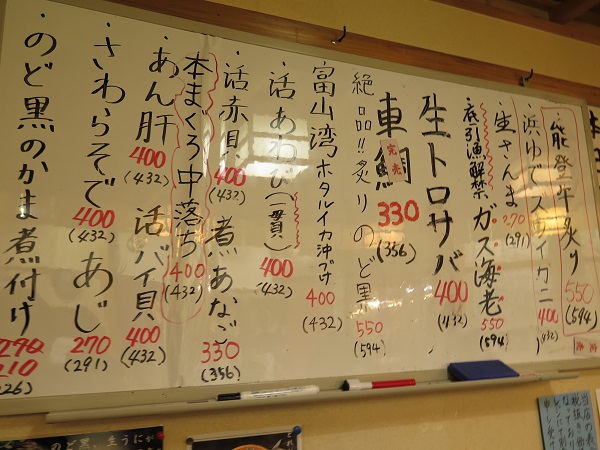 能登牛炙り 550 (594)
浜ゆでズワイカニ 400 (432)
・生さんま 270 (291)
・底引漁解禁 ガス海老 550 (594)
生トロサバ 400 (432)
車鯛 完売 330 (356)
絶品!!炙りのど黒 550 (594)
富山湾ホタルイカ沖づけ 400 (432)
・活あわび(一貫) 400 (432)
・活赤貝 400 (432) 煮あなご 330 (356)
本まぐろ中落ち 400 (432)
・あん肝 400 (432) 活バイ貝 400 (432)
・さわらそで 400 (432) あじ 270 (291)
・のど黒のかま煮付け
のど黒、生うにが